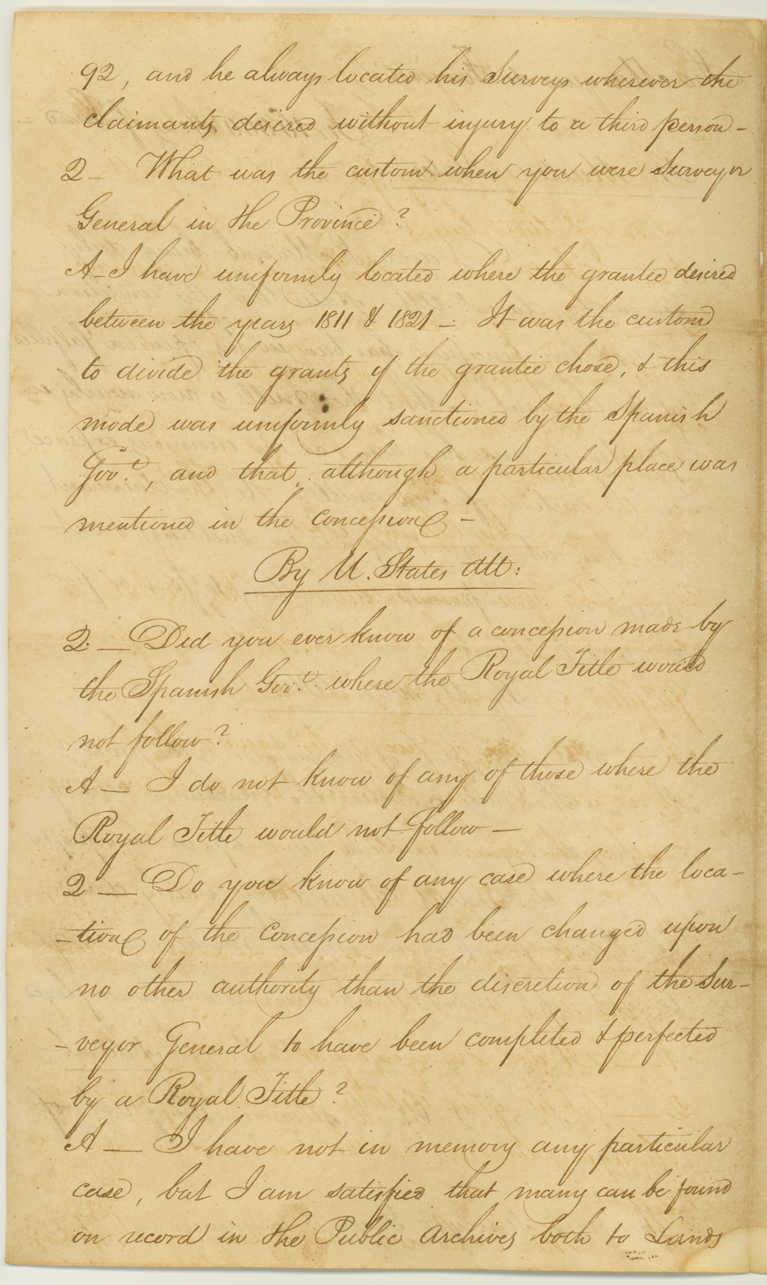 92, and he always located his Surveys wherever the
claimants desired without injury to a third person -
Q - What was the custom when you were Surveyor
General in the Province?
A - I have uniformly located where the grantee desired
between the years 1811 & 1821 - It was the custom
to divide the grants if the grantee chose, & this
mode was uniformly sanctioned by the Spanish
Govt., and that although a particular place was
mentioned in the concession -
By U. States Att:
Q - Did you ever know of a concession made by
the Spanish Govt. where the Royal Title would
not follow?
A - I do not know of any of those where the
Royal Title would not follow -
Q - Do you know of any case where the loca-
-tion of the concession had been changed upon
no other authority than the discretion of the Sur-
-veyor General to have been completed & perfected
by a Royal Title?
A - I have not in memory any particular
case, but I am satisfied that many can be found
on record in the Public Archives both to Lands